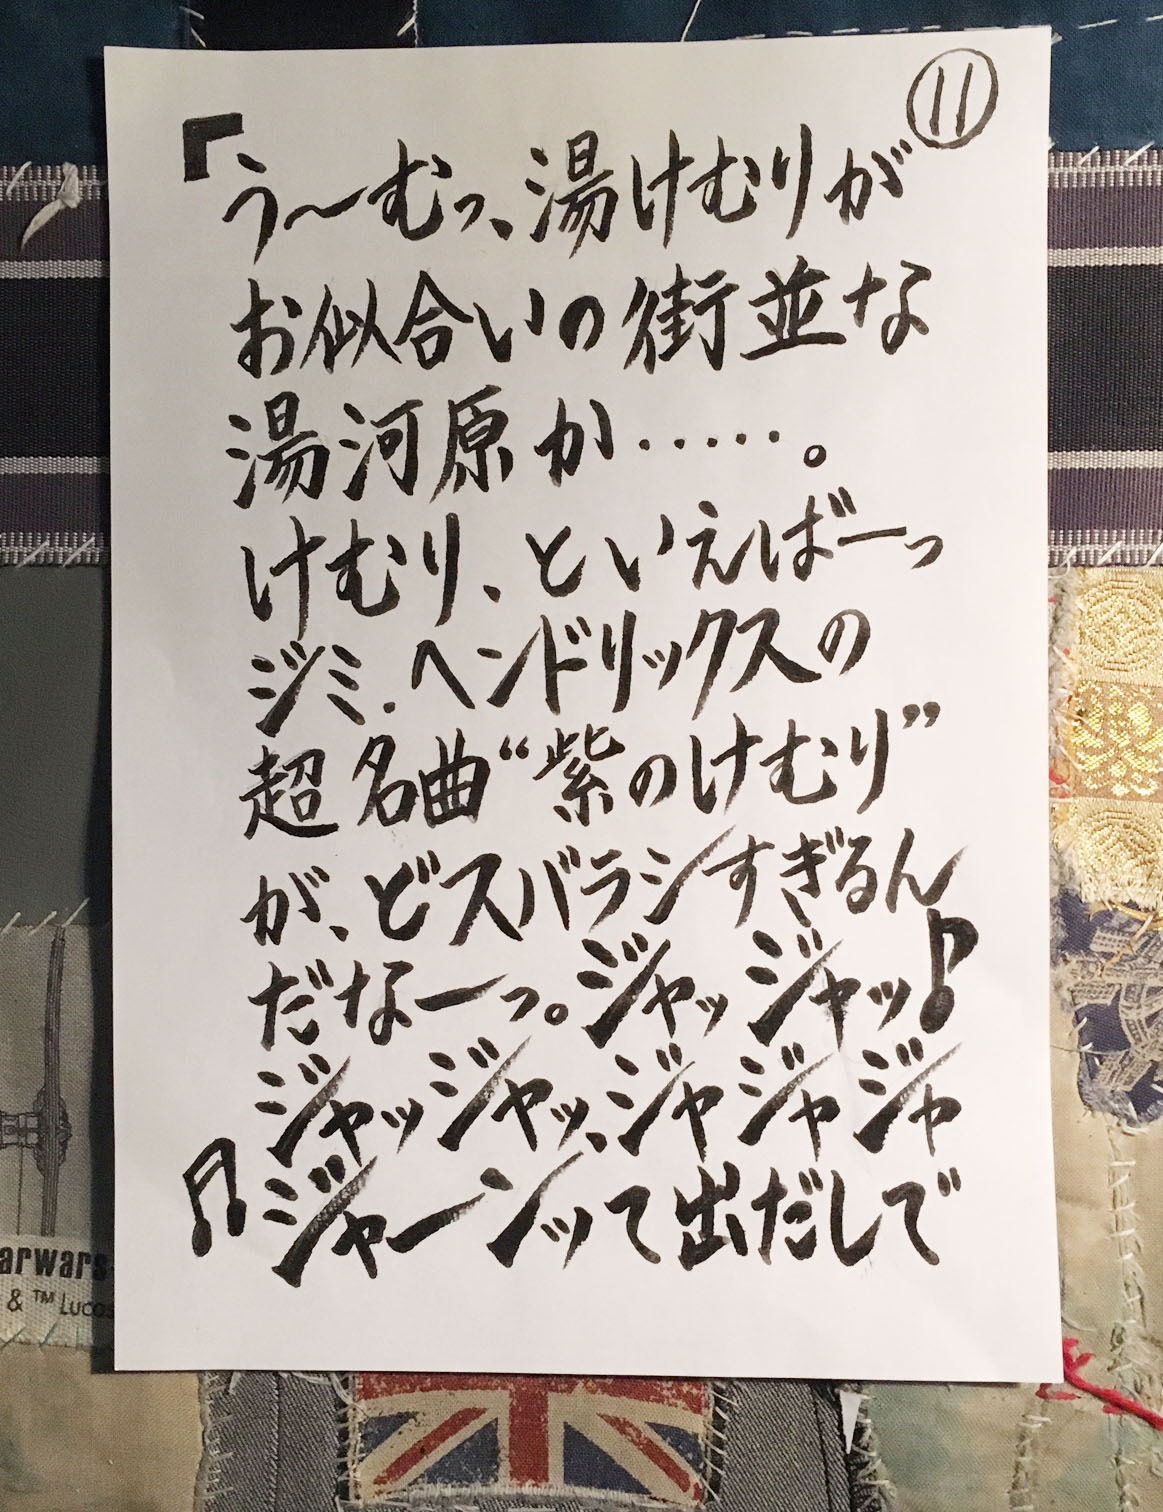 ⑪
『う〜むっ、湯けむりが
お似合いの街並な
湯河原か・・・・・。
けむり、といえばーっ
ジミ・ヘンドリックスの
超名曲“紫のけむり”
が、どスバラシすぎるん
だなーっ。ジャッジャッ♪
ジャッジャッ、ジャジャジャ
♫ジャーンッて出だしで
arwars
& ™ Lucas